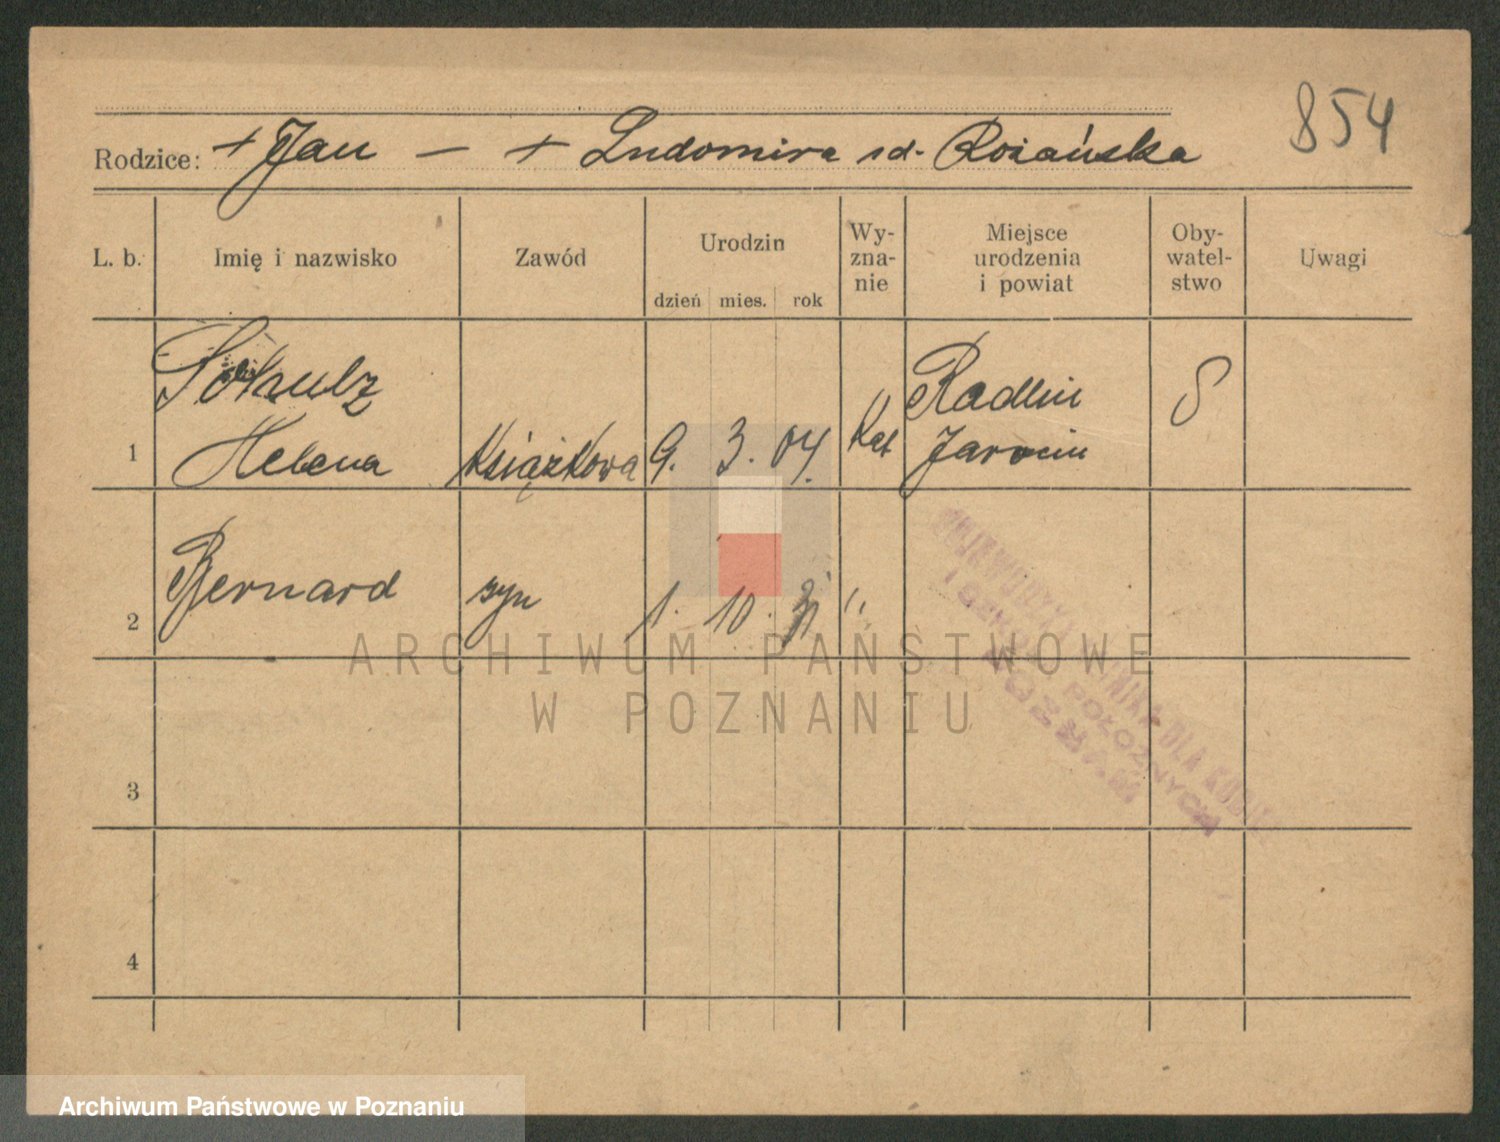 854
Rodzice: + Jan — + Ludomira z d. Rożańska
L. b. Imię i nazwisko Zawód Urodzin dzień mies. rok Wy-zna-nie Miejsce urodzenia i powiat Oby-watel-stwo Uwagi
Radlin
1 Helena Książkowa 9. 3. 04. Kat Jarocin
2 Bernard syn 1. 10. 31 "
ARCHIWUM PAŃSTWOWE
W POZNANIU
3
4
POŁOŻNYCH
POZNAŃ
Archiwum Państwowe w Poznaniu